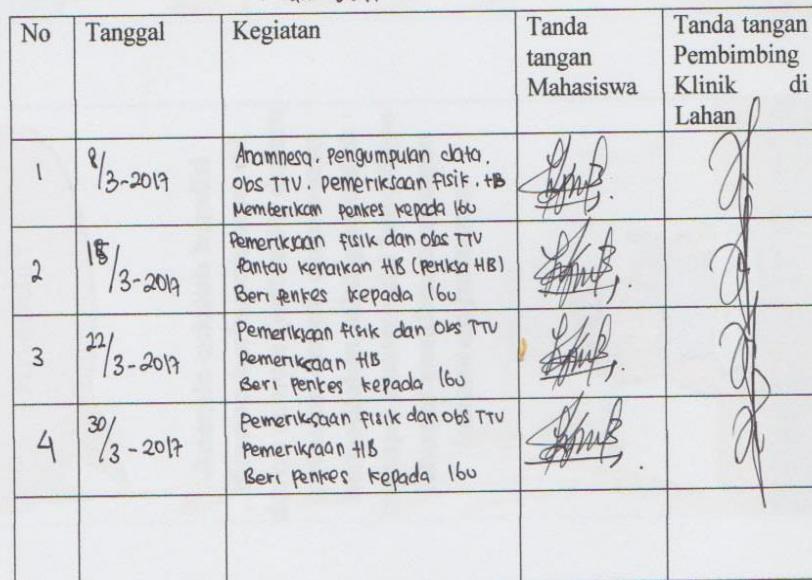 No Tanggal Kegiatan Tanda tangan Mahasiswa Tanda tangan Pembimbing Klinik di Lahan
1 8/3-2017 Anamnesa. pengumpulan data.
obs TTV. pemeriksaan fisik. HB
Memberikan penkes kepada Ibu
2 /3-2017 Pemeriksaan fisik dan obs TTV
Pantau kenaikan HB (periksa HB)
Beri penkes kepada Ibu
3 22/3-2017 Pemeriksaan fisik dan obs TTV
Pemeriksaan HB
Beri penkes kepada Ibu
4 30/3-2017 Pemeriksaan fisik dan obs TTV
Pemeriksaan HB
Beri penkes kepada Ibu